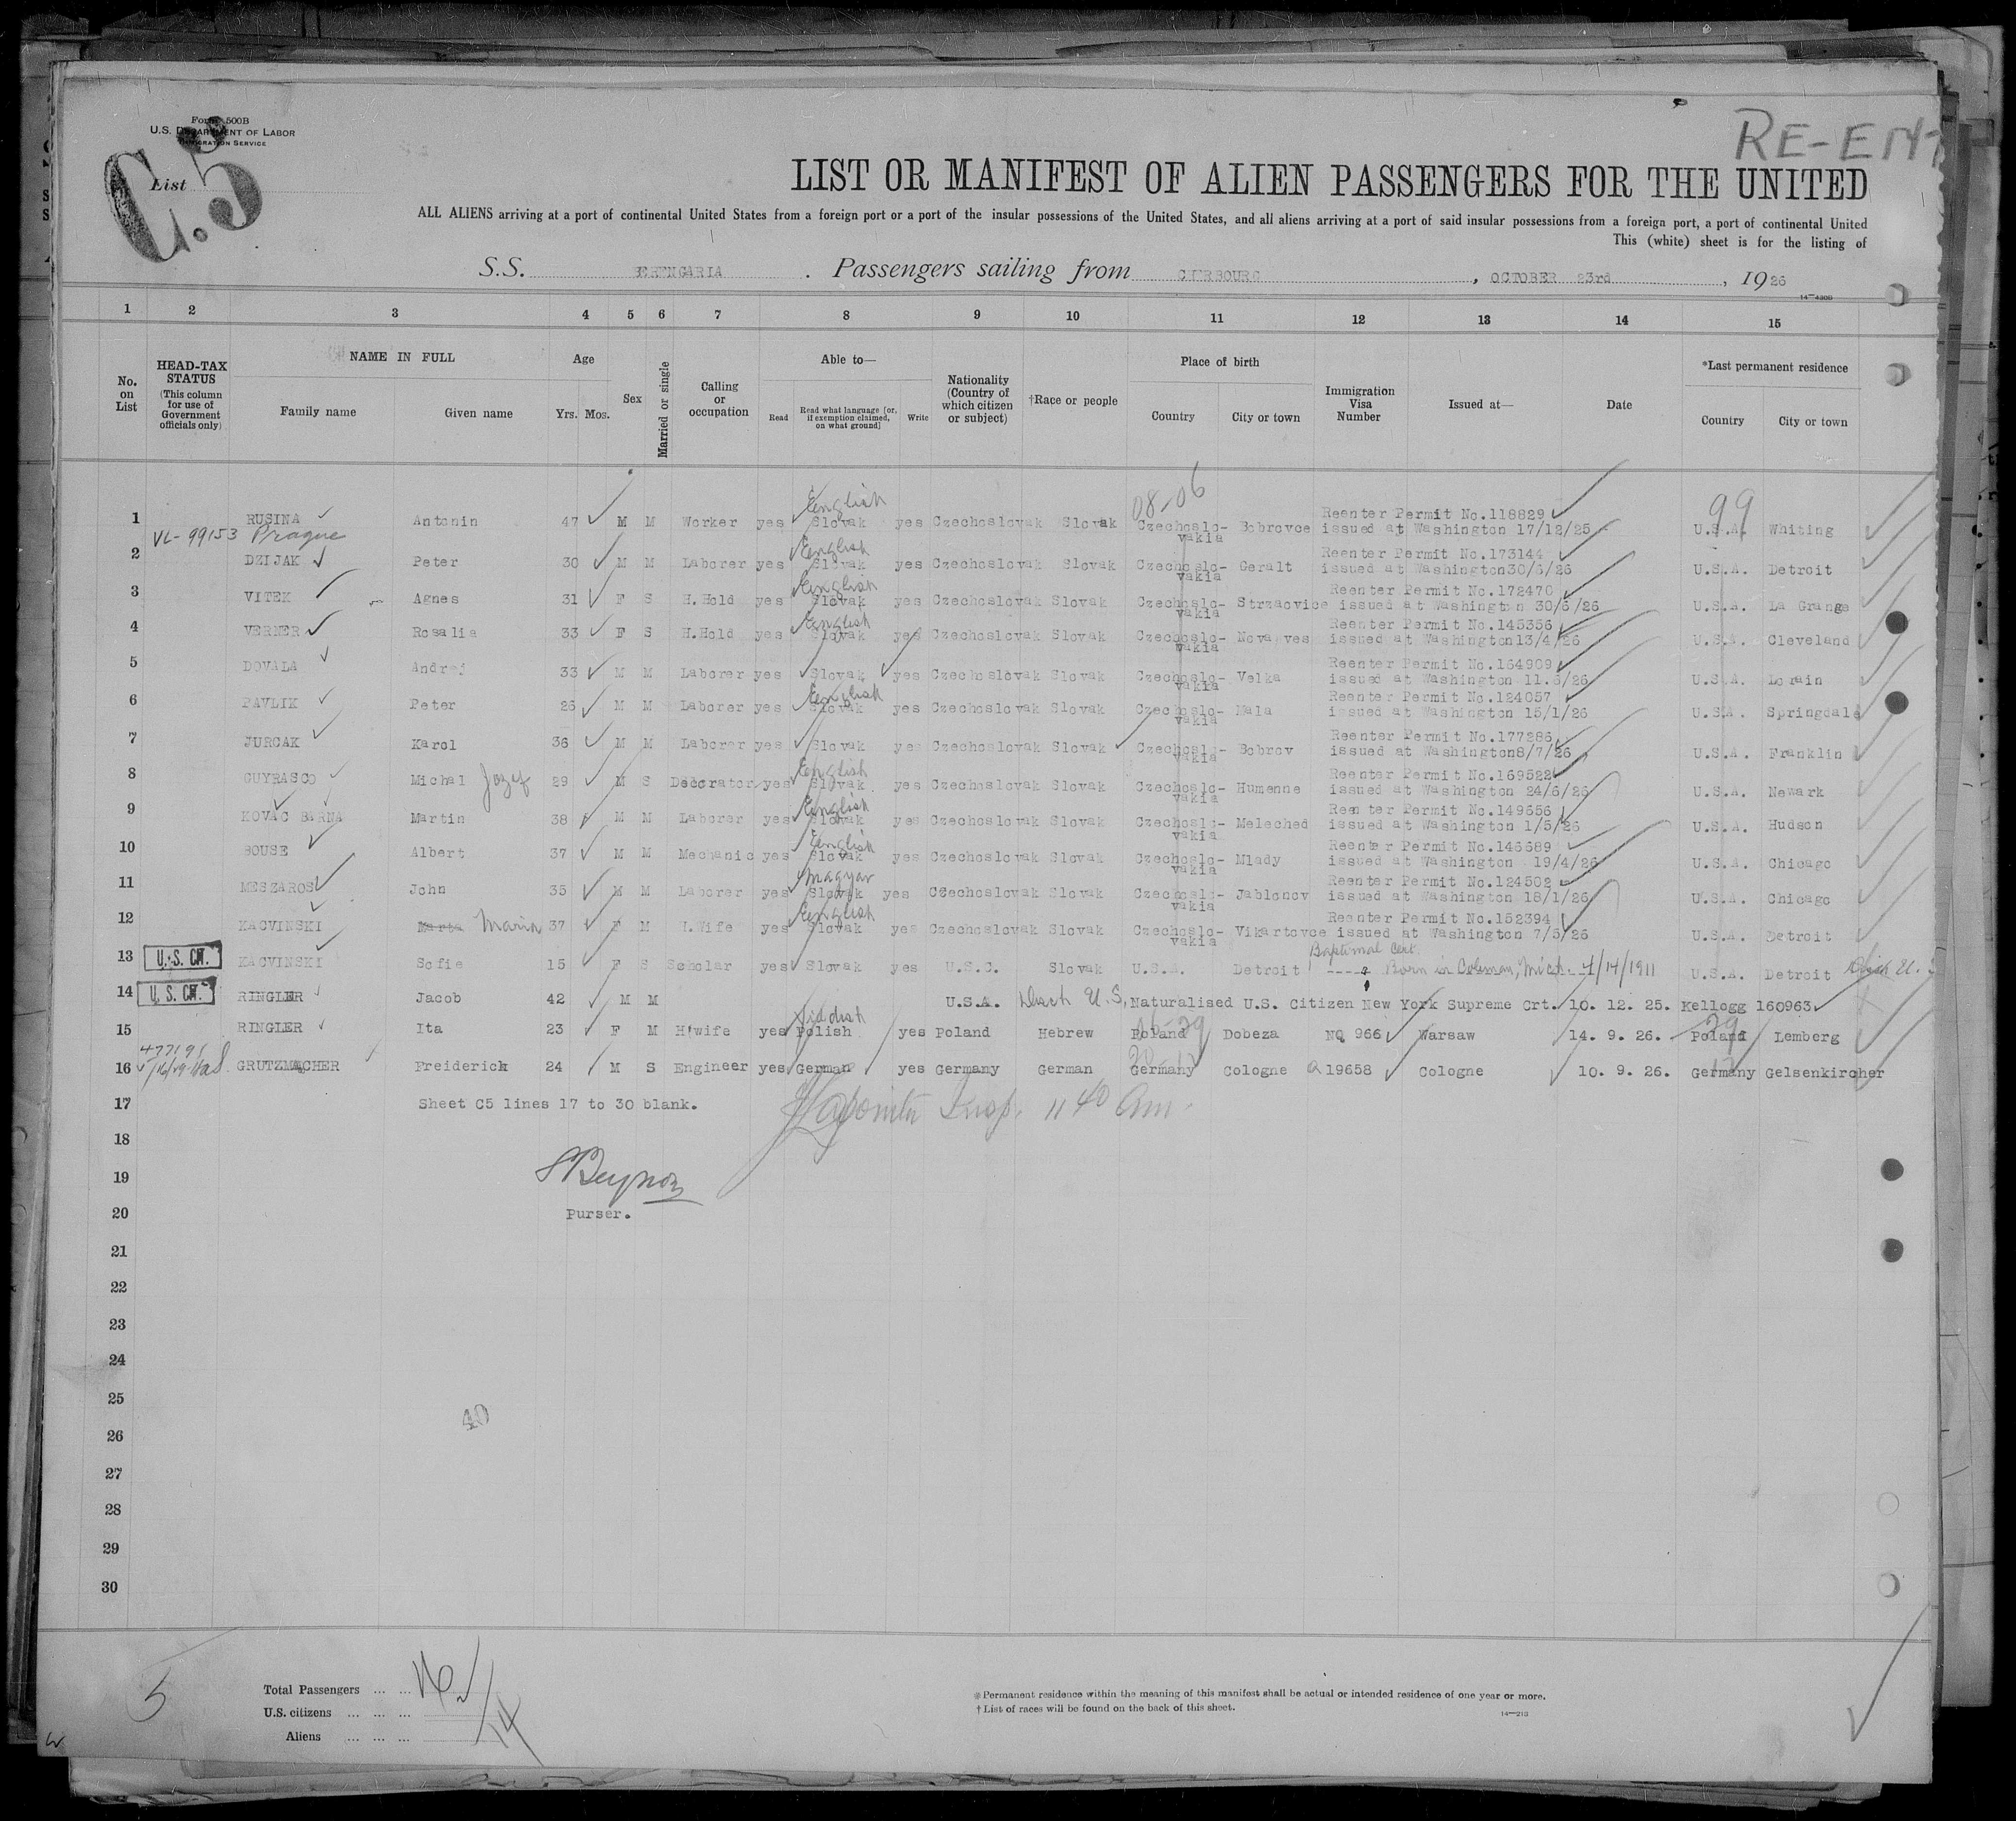 Form 500B
U.S. DEPARTMENT OF LABOR
IMMIGRATION SERVICE
RE-ENT
C.5
List
LIST OR MANIFEST OF ALIEN PASSENGERS FOR THE UNITED
ALL ALIENS arriving at a port of continental United States from a foreign port or a port of the insular possessions of the United States, and all aliens arriving at a port of said insular possessions from a foreign port, a port of continental United
This (white) sheet is for the listing of
S.S. BERENGARIA . Passengers sailing from CHERBOURG , OCTOBER 23rd , 1926
1 2 3 4 5 6 7 8 9 10 11 12 13 14 15
No. on List
HEAD-TAX STATUS (This column for use of Government officials only)
NAME IN FULL Family name Given name
Age Yrs. Mos.
Sex
Married or single
Calling or occupation
Able to— Read Read what language [or, if exemption claimed, on what ground] Write
Nationality (Country of which citizen or subject)
†Race or people
Place of birth Country City or town
Immigration Visa Number
Issued at—
Date
*Last permanent residence Country City or town
08-06 99
English Reenter Permit No.118829
1 RUSINA Antonin 47 M M Worker yes Slovak yes Czechoslovak Slovak Czechoslo-vakia Bobrovce issued at Washington 17/12/25 U.S.A. Whiting
VL-99153 Prague
English Reenter Permit No.173144
2 DZIJAK Peter 30 M M Laborer yes Slovak yes Czechoslovak Slovak Czechoslo-vakia Geralt issued at Washington30/6/26 U.S.A. Detroit
English Reenter Permit No.172470
3 VITEK Agnes 31 F S H.Hold yes Slovak yes Czechoslovak Slovak Czechoslo-vakia Strzaovice issued at Washington 30/6/26 U.S.A. La Grange
English Reenter Permit No.145356
4 VERNER Rosalia 33 F S H.Hold yes Slovak yes Czechoslovak Slovak Czechoslo-vakia Nova ves issued at Washington13/4/26 U.S.A. Cleveland
Reenter Permit No.164909
5 DOVALA Andrej 33 M M Laborer yes Slovak yes Czechoslovak Slovak Czechoslo-vakia Velka issued at Washington 11.6/26 U.S.A. Lorain
English Reenter Permit No.124057
6 PAVLIK Peter 26 M M Laborer yes Slovak yes Czechoslovak Slovak Czechoslo-vakia Mala issued at Washington 15/1/26 U.S.A. Springdale
Reenter Permit No.177286
7 JURCAK Karol 36 M M Laborer yes Slovak yes Czechoslovak Slovak Czechoslo-vakia Bobrov issued at Washington8/7/26 U.S.A. Franklin
English Reenter Permit No.169522
8 GUYRASCO Michal Jozef 29 M S Decorator yes Slovak yes Czechoslovak Slovak Czechoslo-vakia Humenne issued at Washington 24/6/26 U.S.A. Newark
English Reenter Permit No.149656
9 KOVAC BARNA Martin 38 M M Laborer yes Slovak yes Czechoslovak Slovak Czechoslo-vakia Meleched issued at Washington 1/5/26 U.S.A. Hudson
English Reenter Permit No.146689
10 BOUSE Albert 37 M M Mechanic yes Slovak yes Czechoslovak Slovak Czechoslo-vakia Mlady issued at Washington 19/4/26 U.S.A. Chicago
Magyar Reenter Permit No.124502
11 MESZAROS John 35 M M Laborer yes Slovak yes Czechoslovak Slovak Czechoslo-vakia Jablonov issued at Washington 18/1/26 U.S.A. Chicago
English Reenter Permit No.152394
12 KACVINSKI Marta Maria 37 F M H.Wife yes Slovak yes Czechoslovak Slovak Czechoslo-vakia Vikartovce issued at Washington 7/5/26 U.S.A. Detroit
Baptismal Cert.
13 U.S. CIT. KACVINSKI Sofie 15 F S Scholar yes Slovak yes U.S.C. Slovak U.S.A. Detroit Born in Coleman, Mich 4/14/1911 U.S.A. Detroit
14 U.S. CIT. RINGLER Jacob 42 M M U.S.A. Naturalised U.S. Citizen New York Supreme Crt. 10. 12. 25. Kellogg 160963
Yiddish
15 RINGLER Ita 23 F M H'wife yes Polish yes Poland Hebrew Poland Dobeza NQ 966 Warsaw 14. 9. 26. Poland Lemberg
477191
16 GRUTZMACHER Freiderick 24 M S Engineer yes German yes Germany German Germany Cologne Q 19658 Cologne 10. 9. 26. Germany Gelsenkircher
17 Sheet C5 lines 17 to 30 blank. Insp. 11 40 am.
18
19 Beynon
20 Purser.
21
22
23
24
25
40
26
27
28
29
30
5
Total Passengers 16
U.S. citizens 2
Aliens 14
* Permanent residence within the meaning of this manifest shall be actual or intended residence of one year or more.
† List of races will be found on the back of this sheet.
14—213